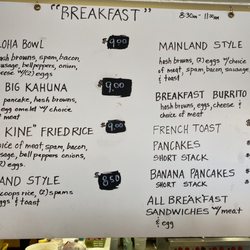 "BREAKFAST"
8:30am - 11:00am
LOHA BOWL $9.00
hash browns, spam, bacon,
sausage, bell peppers, onion,
cheese w/(2) eggs
BIG KAHUNA 9.00
pancake, hash browns,
egg omelet w/ choice
of meat
KINE" FRIED RICE $9.00
choice of meat, spam, bacon,
sausage, bell peppers, onions,
(2) eggs.
AND STYLE 8.50
scoops rice, (2) spams
eggs & toast
MAINLAND STYLE
hash browns, (2) eggs w/ choice
of meat, spam, bacon, sausage
& toast
BREAKFAST BURRITO
hash browns, eggs, cheese &
choice of meat
FRENCH TOAST
PANCAKES
SHORT STACK
BANANA PANCAKES
SHORT STACK
ALL BREAKFAST
SANDWICHES w/ meat
& egg